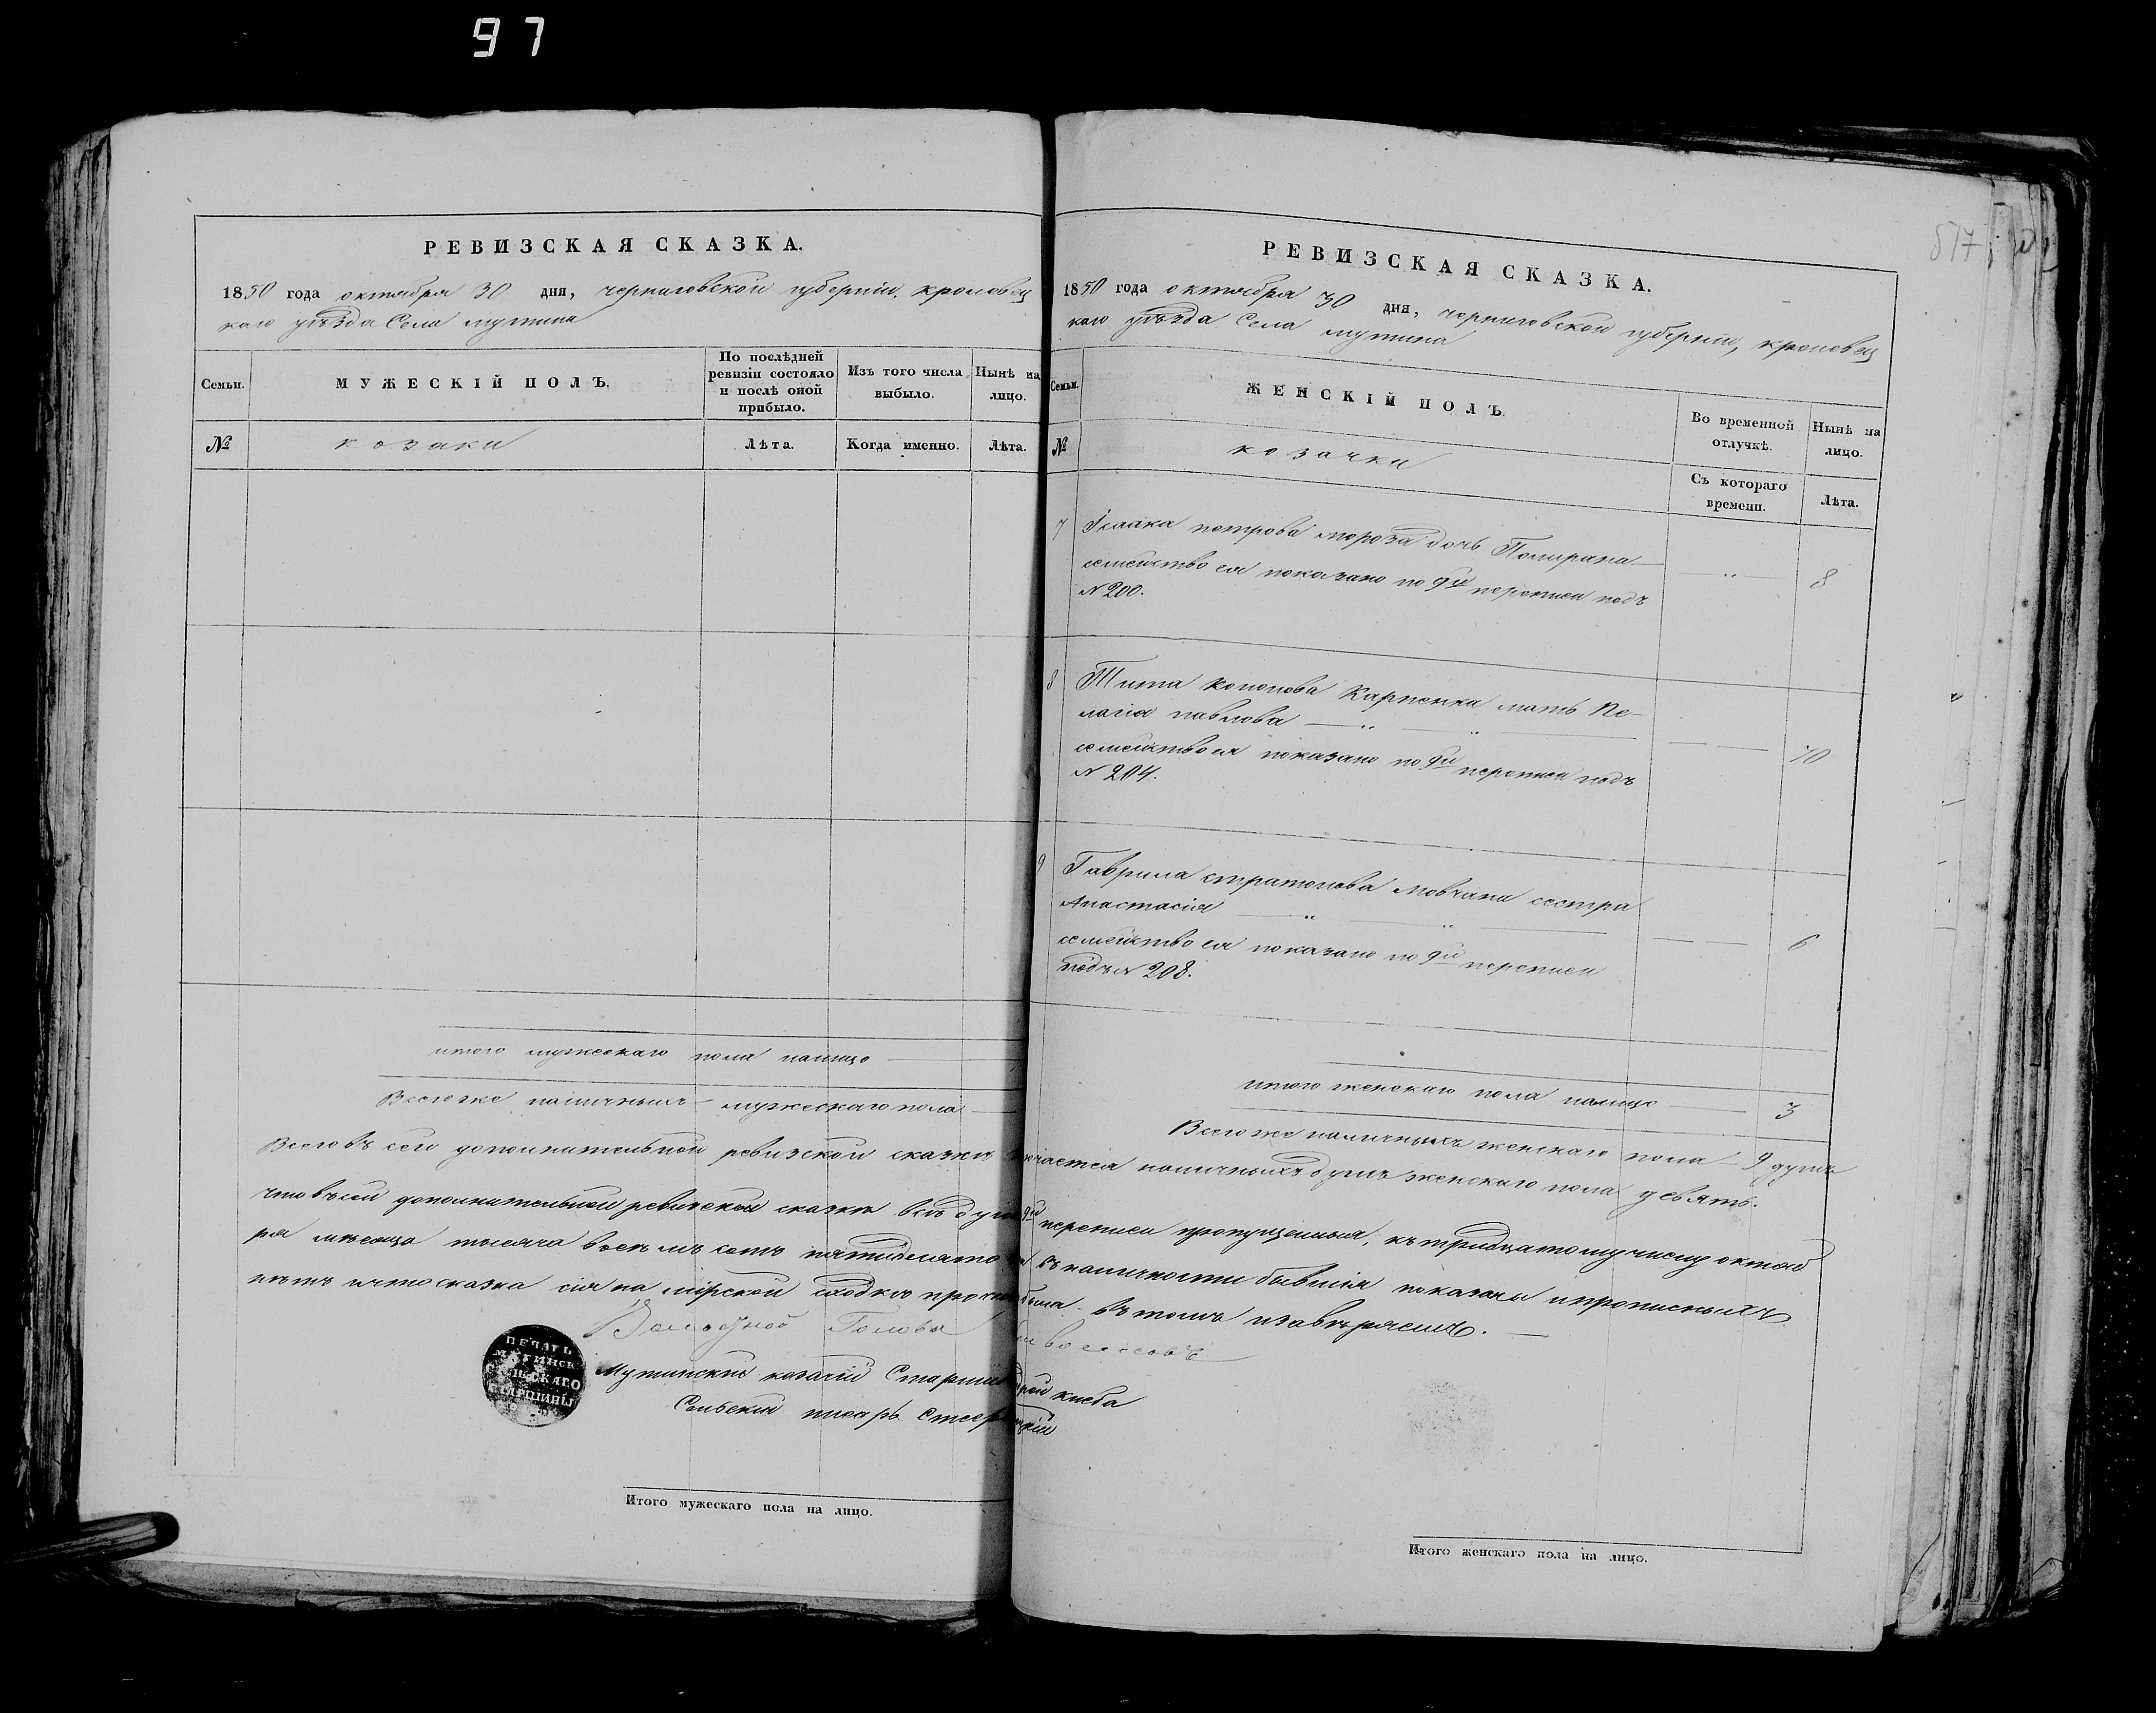 97
РЕВИЗСКАЯ СКАЗКА.
1850 года октября 30 дня, черниговской губернии, кролевец
каго уѣзда Села мутина
Семьи.
МУЖЕСКІЙ ПОЛЪ.
По послѣдней ревизіи состояло и послѣ оной прибыло.
Изъ того числа выбыло.
Нынѣ на лицо.
№
козаки
Лѣта.
Когда именно.
Лѣта.
итого мужескаго пола налицо
Всего же наличныхъ мужескаго пола
РЕВИЗСКАЯ СКАЗКА.
1850 года октября 30 дня, черниговской губерніи, кролевец
каго уѣзда Села мутина
Семьи.
ЖЕНСКІЙ ПОЛЪ.
Во временной отлучкѣ.
Нынѣ на лицо.
№
козачки
Съ котораго времени.
Лѣта.
7 петрова мороза дочь 8
семейство ея показано по 9й переписи подъ
№ 200.
8 Тита кононова Карпенка мать Пе-
лагія павлова 70
семейство ея показано по 9й переписи подъ
№ 204.
9 Гаврила стратонова мовчана сестра
Анастасія 6
семейство ея показано по 9й переписи
подъ № 208.
итого женскаго пола налицо 3
Всего же наличныхъ женскаго пола 9 душъ
Всего въ сей дополнительной ревизской сказки наличныхъ душъ женскаго пола девять.
что въ сей дополнительной ревизской сказки всѣ 9й переписи пропущенныя, къ тридцатому числу октяб
ря мѣсяца тысяча восемъ сотъ пятидесято въ наличности бывшія показаны и прописныхъ
нѣтъ и что сказка сія на мірской сходкѣ была въ томъ и завѣряемъ.
Волостной Голова
Мутинскій козачій киеба
Сельскій писарь
ПЕЧАТЬ
МУТИНСК
СЕЛЬСКАГО
СТАРШИНЫ
Итого мужескаго пола на лицо.
Итого женскаго пола на лицо.